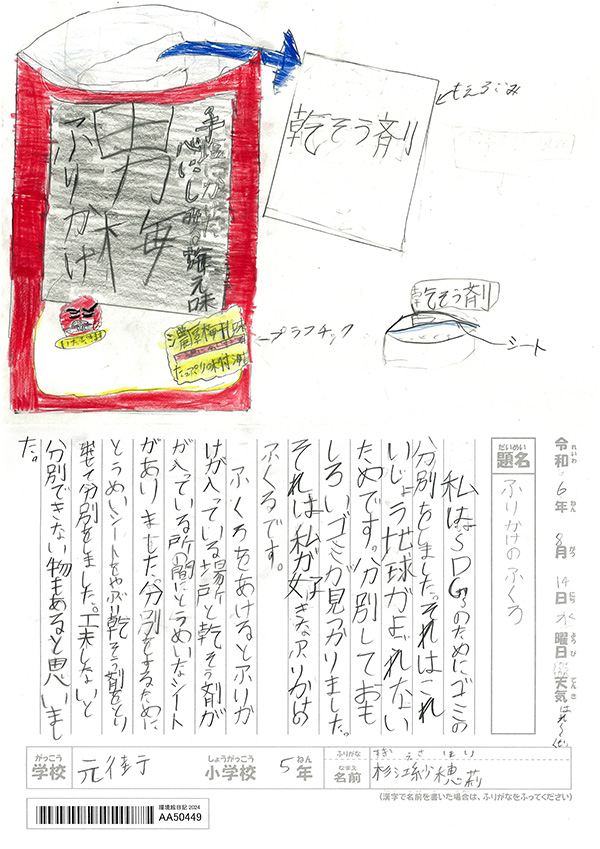 男梅
ふりかけ
乾そう剤
もえるごみ
濃厚梅干の味
たっぷりの味付
プラスチック
乾そう剤
シート
令和6年8月14日水曜日
天気
はれ
だいめい
題名
ふりかけのふくろ
私はSDGsのためにゴミの
分別をしました。それはこれ
いじょう地球がよごれない
ためです。分別しておも
しろいゴミが見つかりました。
それは私が好きなふりかけの
ふくろです。
ふくろをあけるとふりか
けが入っている場所と乾そう剤が
が入っている所の間にとうめいなシート
がありました。分別をするために
とうめいシートをやぶり乾そう剤をとり
出せて分別をしました。工夫しないと
分別できない物もあると思いまし
た。
がっこう
学校
元街
しょうがっこう
小学校
5年
ふりがな
すぎえさほり
なまえ
名前
杉江紗穂莉
(漢字で名前を書いた場合は、ふりがなをふってください)
環境絵日記 2024
AA50449